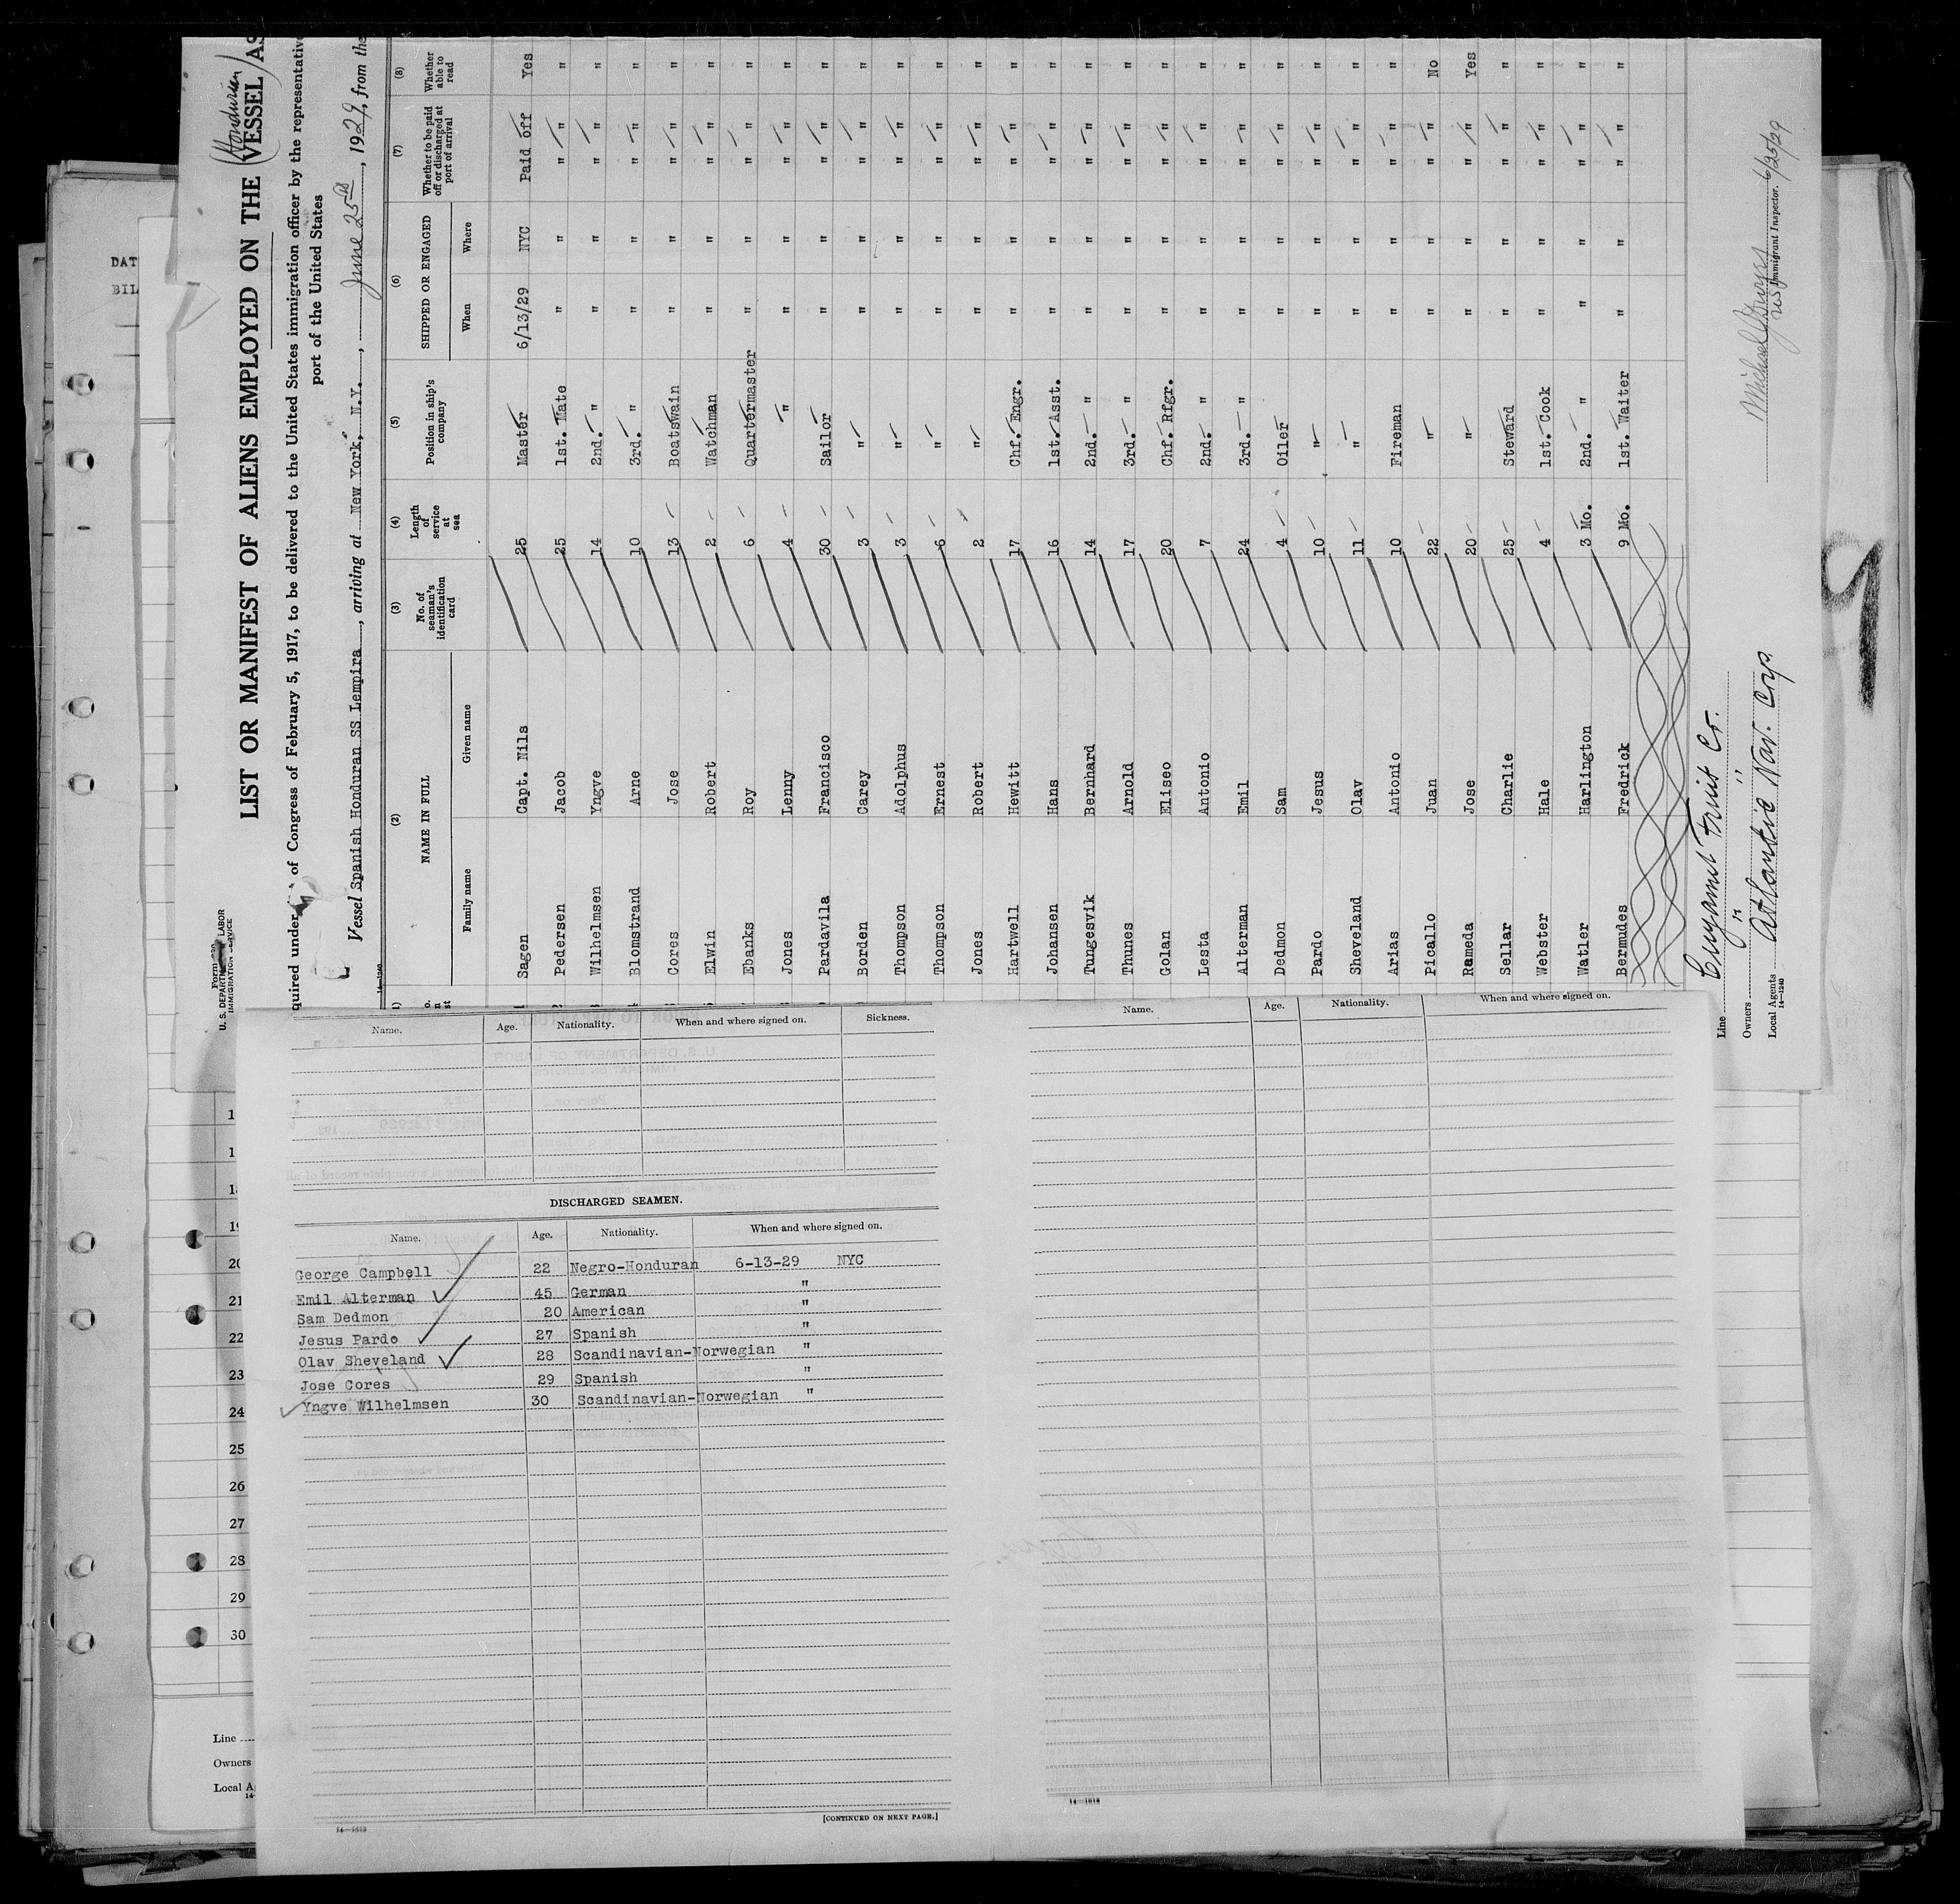 Form
U. S. DEPARTMENT LABOR
IMMIGRATION SERVICE
(Honduran)
LIST OR MANIFEST OF ALIENS EMPLOYED ON THE VESSEL AS
quired under of Congress of February 5, 1917, to be delivered to the United States immigration officer by the representative
port of the United States
Vessel Spanish Honduran SS Lempira, arriving at New York, N.Y., June 25th, 1929, from the
(2) (3) (4) (5) (6) (7) (8)
NAME IN FULL No. of seaman's identification card Length of service at sea Position in ship's company SHIPPED OR ENGAGED Whether to be paid off or discharged at port of arrival Whether able to read
Family name Given name When Where
Sagen Capt. Nils 25 Master 6/13/29 NYC Paid off Yes
Pedersen Jacob 25 1st. Mate " " " " "
Wilhelmsen Yngve 14 2nd. " " " " " "
Blomstrand Arne 10 3rd. " " " " " "
Cores Jose 13 Boatswain " " " " "
Elwin Robert 2 Watchman " " " " "
Ebanks Roy 6 Quartermaster " " " " "
Jones Lenny 4 " " " " " "
Pardavila Francisco 30 Sailor " " " " "
Borden Carey 3 " " " " " "
Thompson Adolphus 3 " " " " " "
Thompson Ernest 6 " " " " " "
Jones Robert 2 " " " " " "
Hartwell Hewitt 17 Chf. Engr. " " " " "
Johansen Hans 16 1st. Asst. " " " " "
Tungesvik Bernhard 14 2nd. " " " " " "
Thunes Arnold 17 3rd. " " " " " "
Golan Eliseo 20 Chf. Rfgr. " " " " "
Lesta Antonio 7 2nd. " " " " " "
Alterman Emil 24 3rd. " " " " " "
Dedmon Sam 4 Oiler " " " " "
Pardo Jesus 10 " " " " " "
Sheveland Olav 11 " " " " " "
Arias Antonio 10 Fireman " " " " "
Picallo Juan 22 " " " " " No
Rameda Jose 20 " " " " " Yes
Sellar Charlie 25 Steward " " " " "
Webster Hale 4 1st. Cook " " " " "
Watler Harlington 3 Mo. 2nd. " " " " " "
Bermudes Fredrick 9 Mo. 1st. Waiter " " " " "
Line Cuyamel Fruit Co.
Owners " " "
Local Agents Atlantic Nav. Corp.
14—1240
Immigrant Inspector. 6/25/29
DAT
BIL
Name. Age. Nationality. When and where signed on. Sickness.
DISCHARGED SEAMEN.
Name. Age. Nationality. When and where signed on.
George Campbell 22 Negro-Honduran 6-13-29 NYC
Emil Alterman 45 German "
Sam Dedmon 20 American "
Jesus Pardo 27 Spanish "
Olav Sheveland 28 Scandinavian-Norwegian "
Jose Cores 29 Spanish "
Yngve Wilhelmsen 30 Scandinavian-Norwegian "
[CONTINUED ON NEXT PAGE.]
Name. Age. Nationality. When and where signed on.
20
21
22
23
24
25
26
27
28
29
30
Line
Owners
Local A